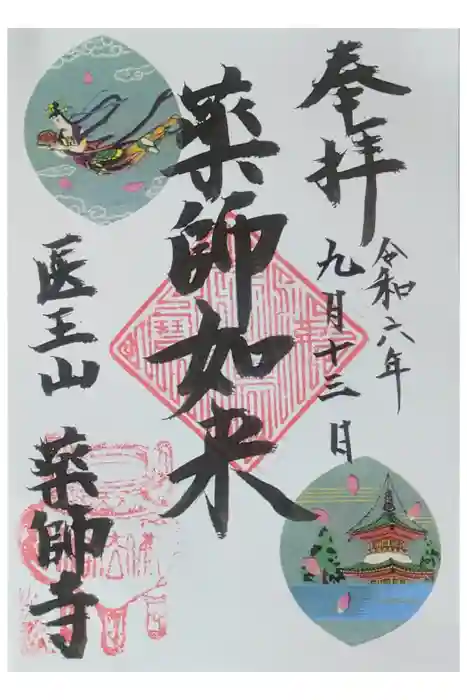 奉拝
令和六年
九月十三日
薬師如来
医王山
薬師寺